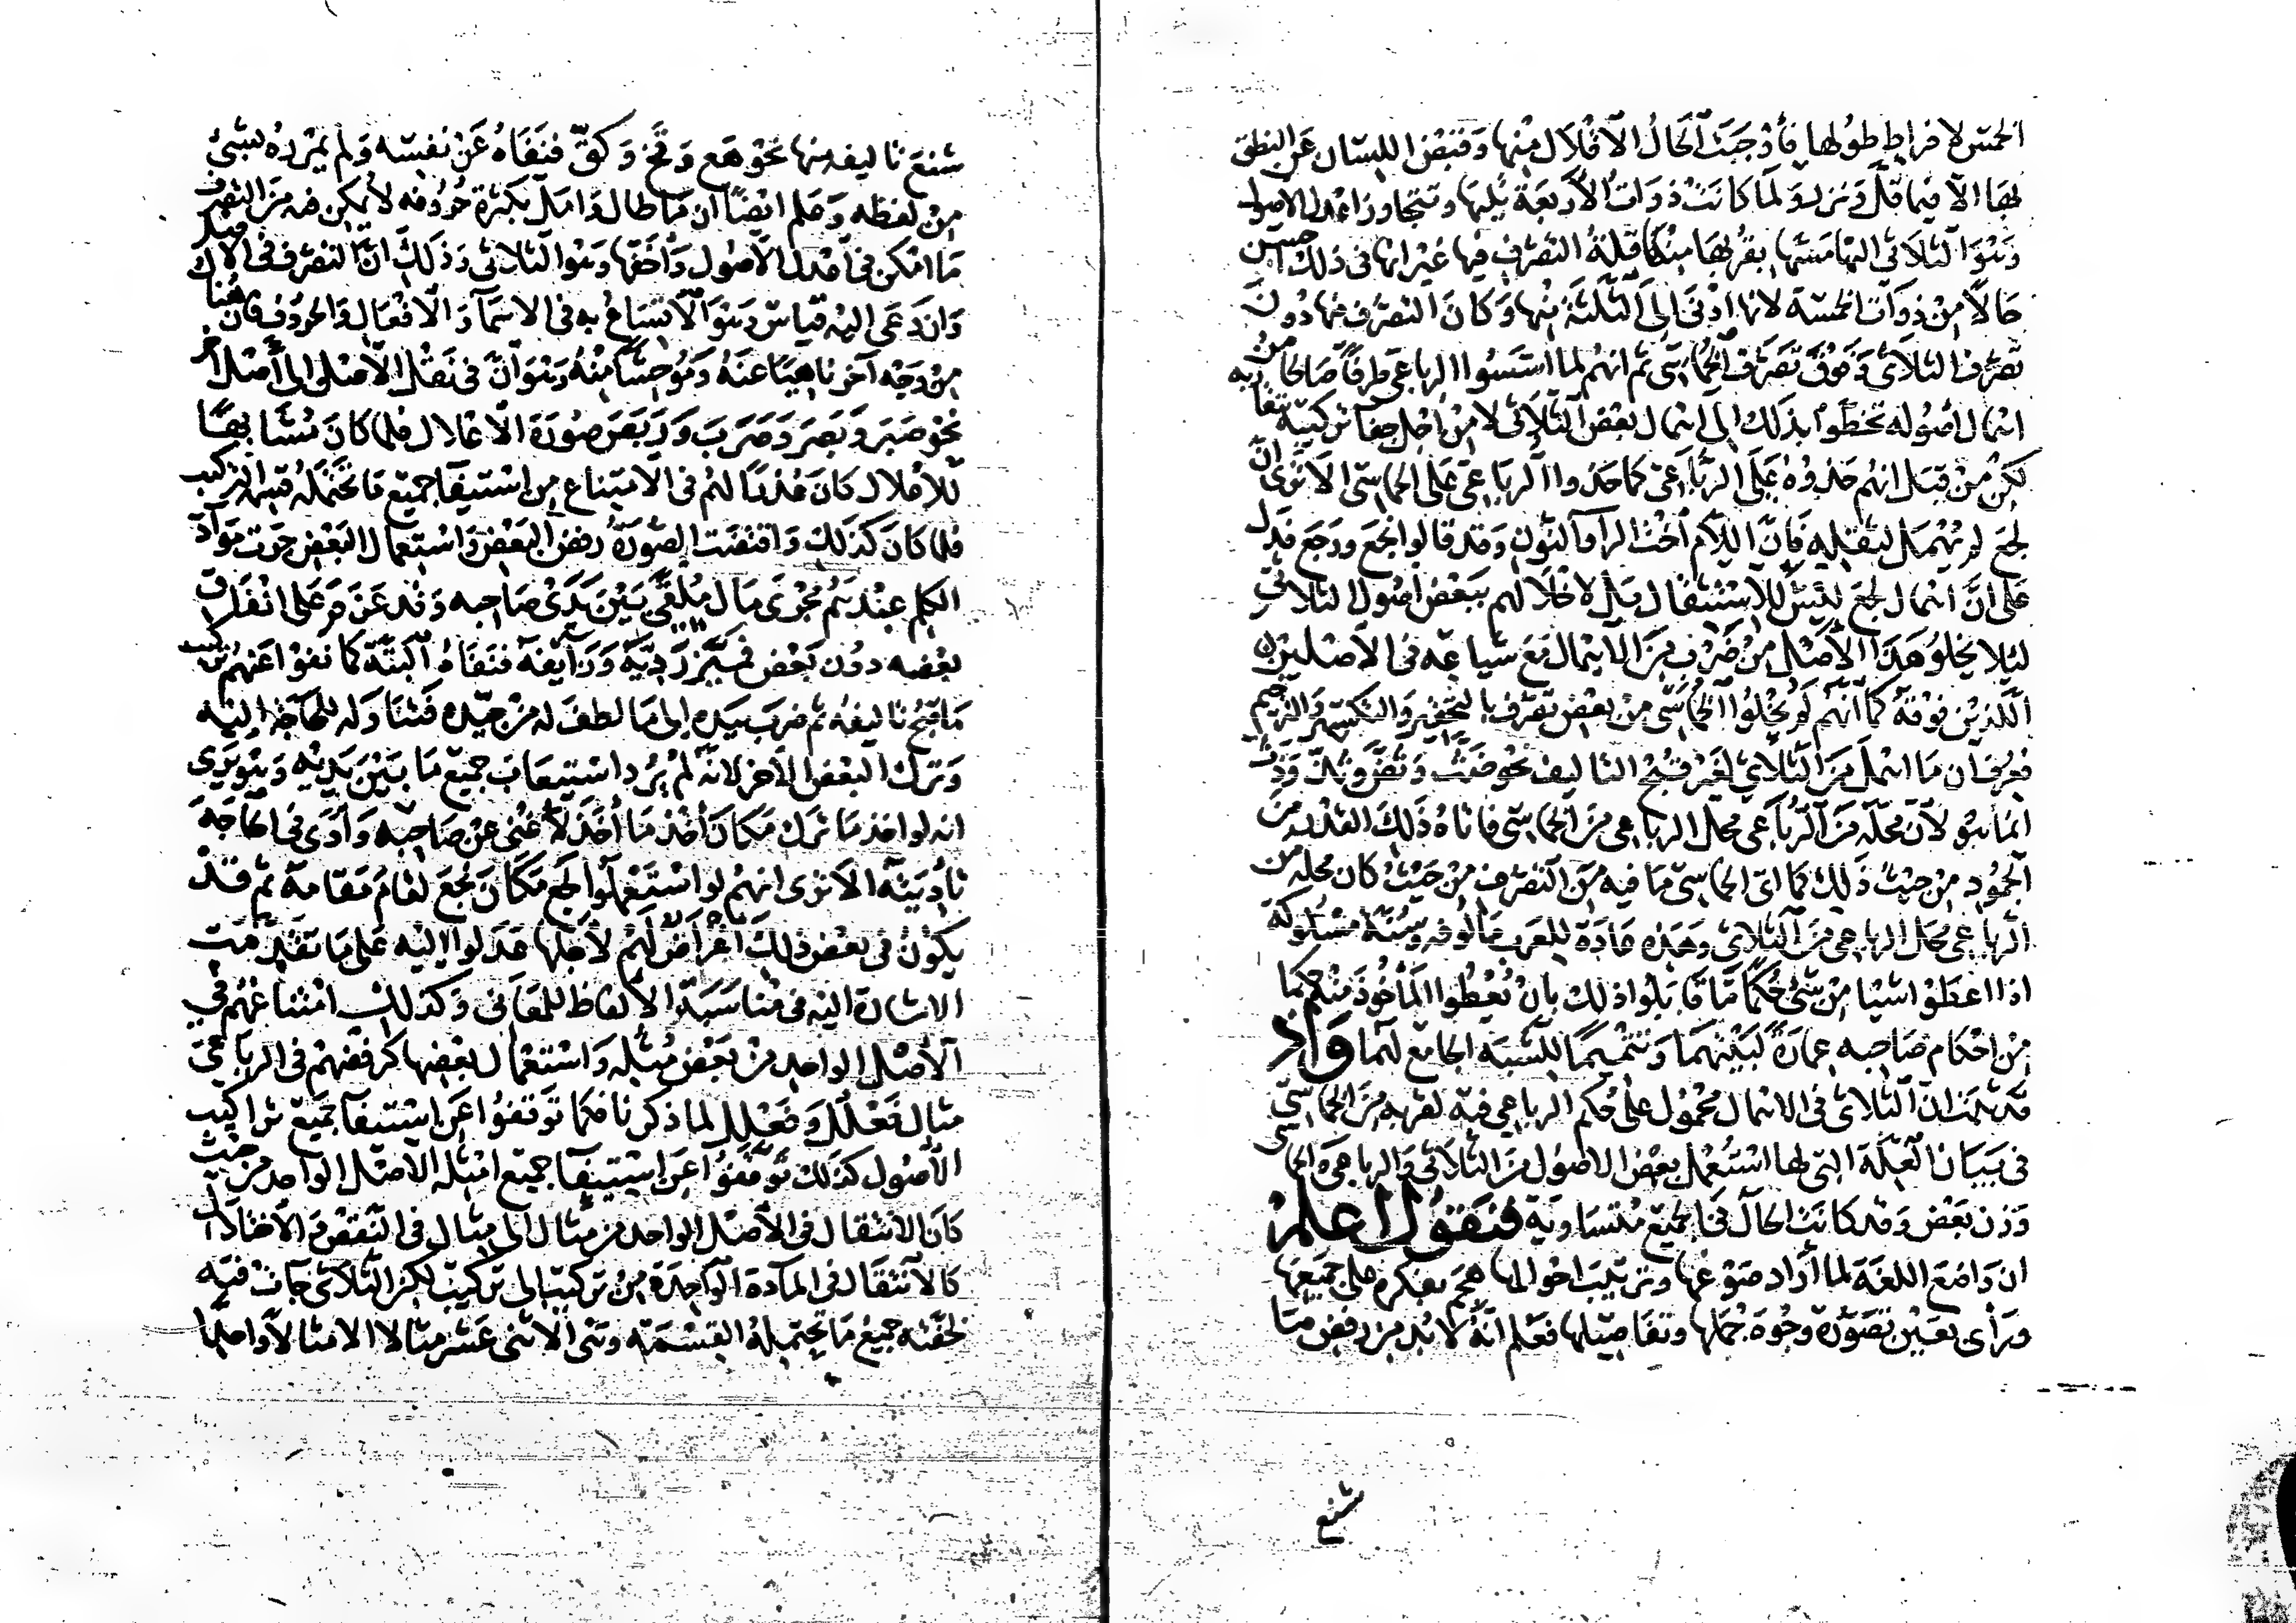 الخمس لافراط طولها فأوجبت الحال الاقلال منها وقبض اللسان عن النطق
بها الا فيما قل ونزر ولما كانت ذوات الاربعة تليها وتتجاوز اعدل الاصول
وهو الثلاثي اليها مسها بقربها منها قلة التصرف فيها غير انها في ذلك احسن
حالا من ذوات الخمسة لانها ادنى الى الثلثة منها وكان التصرف فيها دون
تصرف الثلاثي وفوق تصرف الخماسي ثم انهم لما امسوا الرباعي طرفا صالحا من
اهمال اصوله تخطوا بذلك الى اهمال بعض الثلاثي لا من اجل جفا تركيبه تقاربه
لكن من قبل انهم حذوه على الرباعي كما حذوا الرباعي على الخماسي الا ترى ان
لجع لم يهمل لثقله فان اللام اخت الرا والنون وقد قالوا نجع ورجع فدل
على ان اهمال لجع ليس للاستثقال بل لاخلالهم ببعض اصول الثلاثي
ليلا يخلو هذا الاصل من ضرب من الاهمال مع شياعه في الاصلين
اللذين فوقه كما انهم لم يخلوا الخماسي من بعض تصرف بالتحقير والتكسير والترخيم
فعرف ان ما اهمل من الثلاثي لغير قبح التاليف نحو ضث وثض وثذ وذث
انما هو لان محله من الرباعي محل الرباعي من الخماسي فاتاه ذلك القدر من
الجمود من حيث ذلك كما اتى الخماسي ما فيه من التصرف من حيث كان محله من
الرباعي محل الرباعي من الثلاثي وهذه عادة للعرب مالوفة وسنة مسلوكة
اذا اعطوا شيا من شي حكما ما قابلوا ذلك بان يعطوا الماخوذ منه حكما
من احكام صاحبه عمارة لبينهما وتتميما للشبه الجامع لهما واذ
قد ثبت ان الثلاثي في الاهمال محمول على حكم الرباعي فيه لقربه من الخماسي
في بيان العلة التي لها استعمل بعض الاصول من الثلاثي والرباعي والخماسي
دون بعض وقد كانت الحال في الجميع متساوية فنقول اعلم
ان واضع اللغة لما اراد صوغها وترتيب احوالها هجم بفكره على جميعها
ورأى بعين تصوره وجوه جملها وتفاصيلها فعلم انه لا بد من رفض ما
شنع
شنع تاليفه منها نحو هع وقخ وكق فنفاه عن نفسه ولم يمرره بشي
من لفظه وعلم ايضا ان ما طال وامل بكثرة حروفه لا يمكن فيه من التصرف
ما امكن في اعدل الاصول واخفها وهو الثلاثي وذلك ان التصرف في الاصل
وان دعى اليه قياس وهو الاتساع به في الاسما والافعال والحروف فان هناك
من وجه آخر ناهيا عنه وموحشا منه وهو ان في نقل الاصل الى اصل آخر
نحو صبر وبصر وصرب وربص صورة الاعلال فلما كان مشابها
للاعلال كان عذرا لهم في الامتناع من استيفا جميع ما تحتمله قسمة التركيب
فلما كان كذلك واقتضت الصورة رفض البعض واستعمال البعض جرت مواد
الكلم عندهم مجرى مال ملقى بين يدي صاحبه وقد عزم على انفاق
بعضه دون بعض فميز رديه وزايفه فنفاه البتة كما نفوا عنهم تركيب
ما قبح تاليفه ثم ضرب بيده الى ما لطف له من جيده فتناوله للحاجة اليه
وترك البعض الآخر لانه لم يرد استيعاب جميع ما بين يديه وهو يرى
انه لو اخذ ما ترك مكان اخذ ما اخذ لاغنى عن صاحبه وادى في الحاجة
تأديته الا ترى انهم لو استعملوا لجع مكان نجع لقام مقامه ثم قد
يكون في بعض ذلك اغراض لهم لاجلها عدلوا اليه على ما تقدمت
الاشارة اليه في مناسبة الالفاظ للمعاني وكذلك امتناعهم في
الاصل الواحد من بعض مثله واستعمال بعضها كرفضهم في الرباعي
مثال فعلل وفعلل لما ذكرنا فكما توقفوا عن استيفا جميع تراكيب
الاصول كذلك توقفوا عن استيفا جميع امثلة الاصل الواحد من حيث
كان الانتقال في الاصل الواحد من مثال الى مثال في النقض
كالانتقال في المادة الواحدة من تركيب الى تركيب لكن الثلاثي جات فيه
لخفته جميع ما تحتمله القسمة وهي الاثنى عشر مثالا الا مثالا واحدا